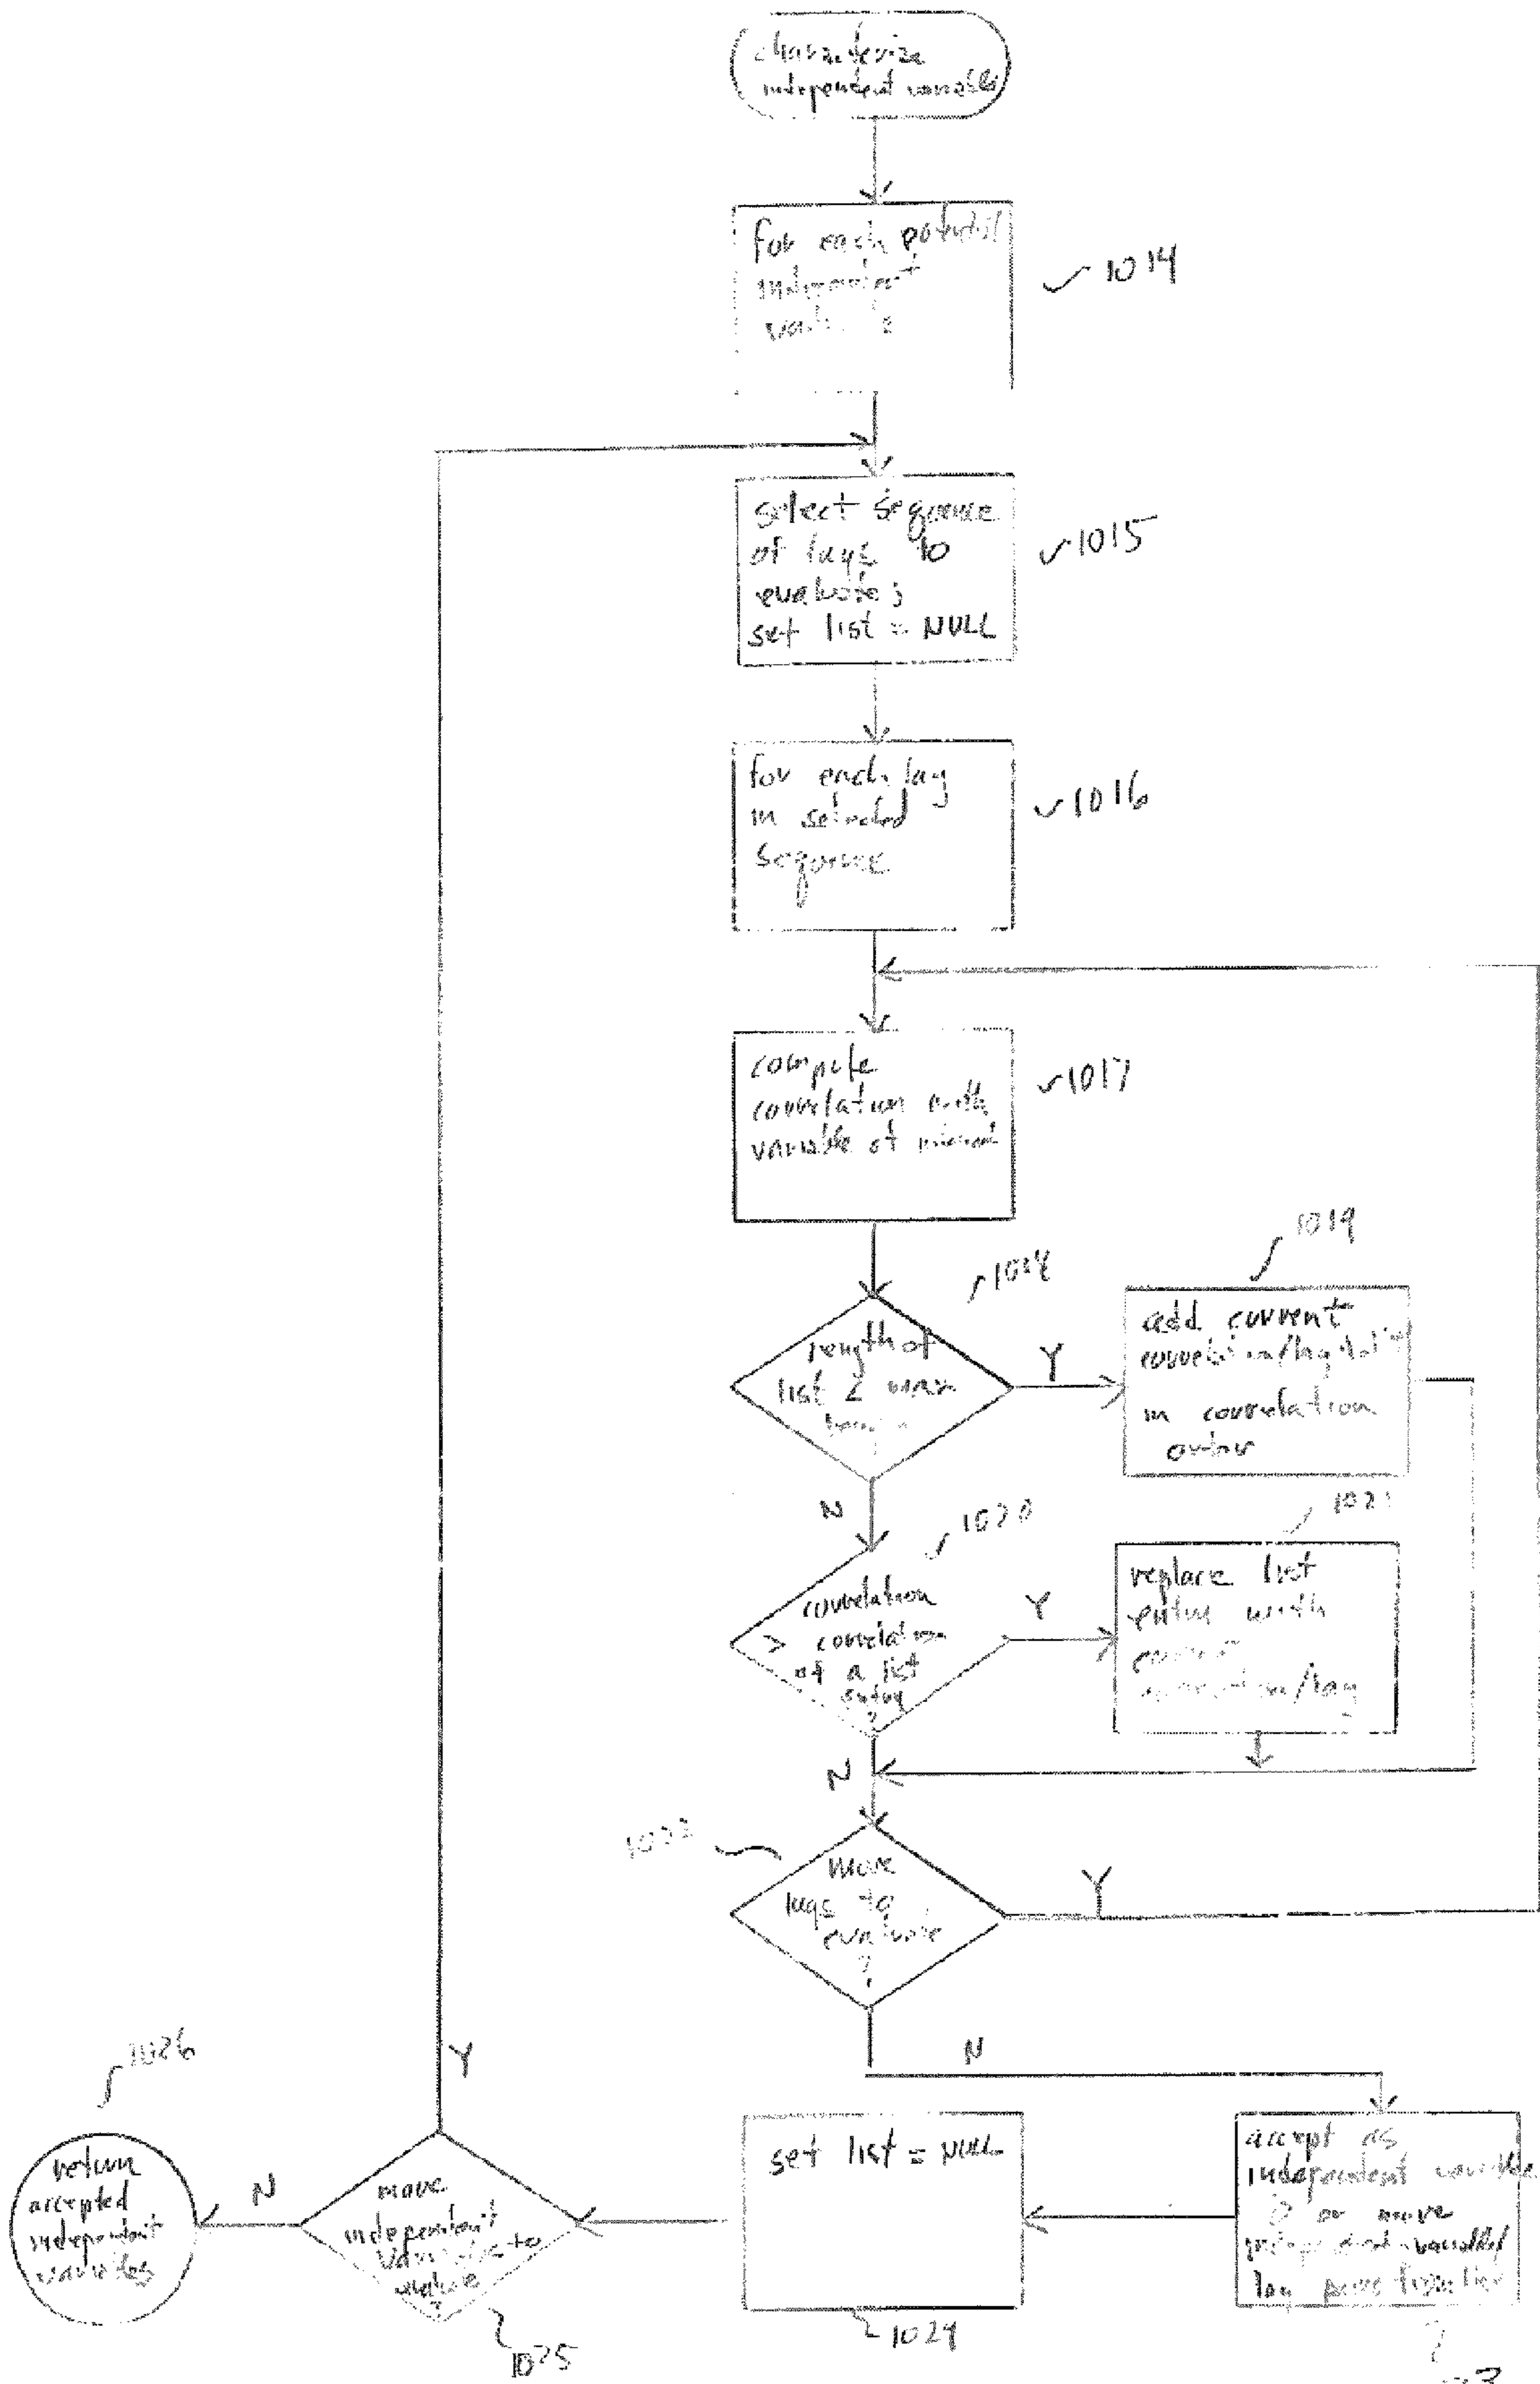 characterize
independent variables
for each potential
independent
1014
select sequence
of lags to
evaluate;
set list = NULL
1015
for each lag
in selected
sequence
1016
compute
correlation with
variable of interest
1017
length of
list < max
Y
N
1019
add current
correlation/lag to list
in correlation
order
1020
correlation
> correlation
of a list
entry
?
Y
N
replace list
entry with
current
correlation/lag
1022
more
lags to
evaluate
?
Y
N
accept as
independent variable
0 or more
independent variable/
lag pairs from list
set list = NULL
1024
more
independent
variables to
?
1025
Y
N
1026
return
accepted
independent
variables